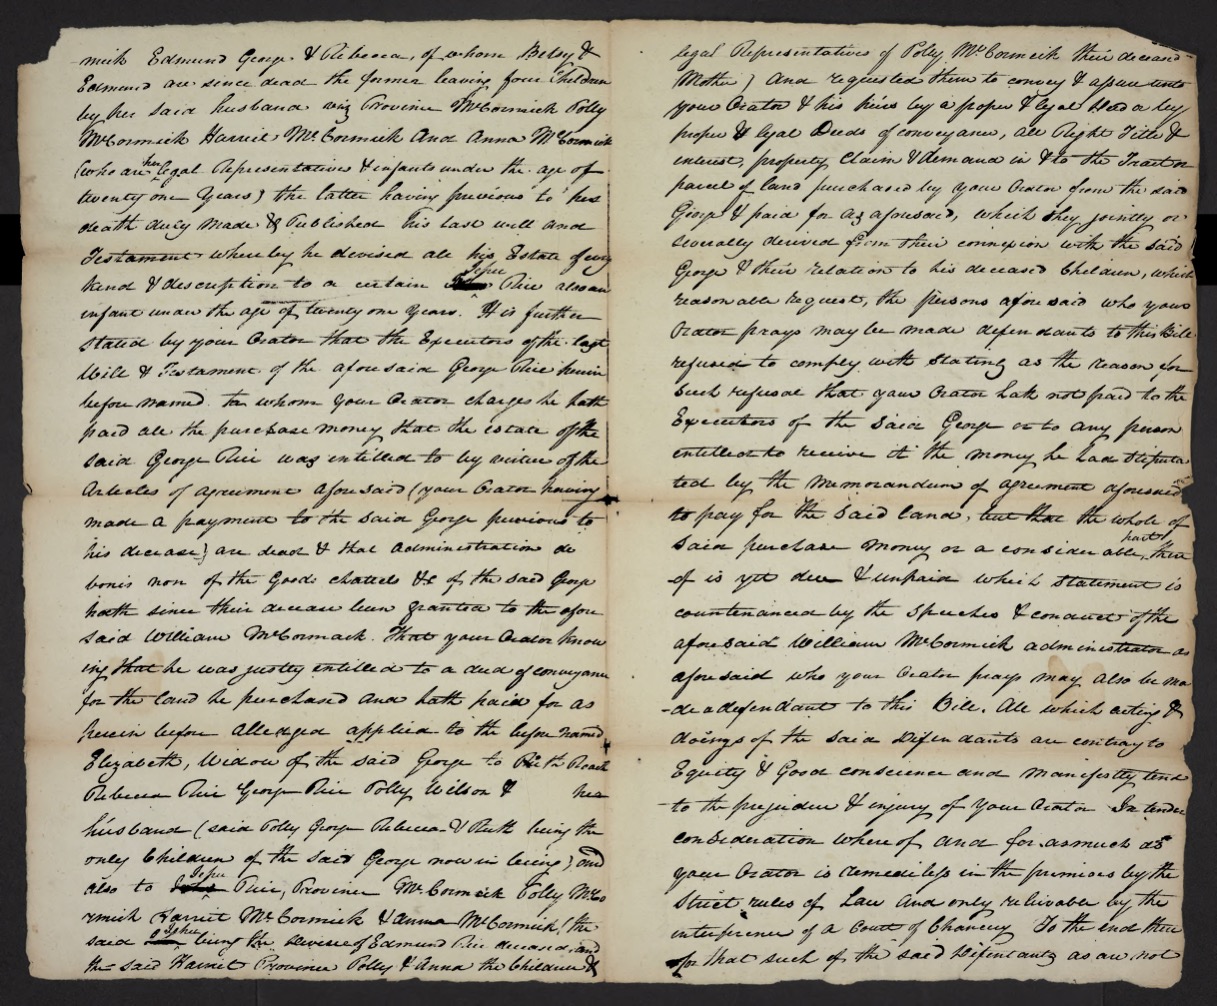 mick Edmund George & Rebecca, of whom Betsy &
Edmund are since dead the former leaving four Children
by her said husband viz Province McCormick Polly
McCormick Harriet McCormick And Anna McCormick
(who are her legal Representative & infants under the age of
twenty one Years) the latter having previous to his
death duly made & Published his last will and
Testament whereby he devised all his Estate of every
kind & description to a certain Rice also an
infant under the age of twenty one Years. It is further
stated by your Orator that the Executors of the last
Will & Testament of the aforesaid George Rice herein
before named to whom your Orator charges he hath
paid all the purchase money that the estate of the
said George Rice was entitled to by virtue of the
Articles of agreement aforesaid (your Orator having
made a payment to the said George previous to
his decease) are dead & that administration de
bonis non of the Goods chattels &c of the said George
hath since their decease been granted to the afore
said William McCormack. That your Orator know
ing that he was justly entitled to a deed of conveyance
for the land he purchased and hath paid for as
herein before alledged applied to the before named
Elizabeth, Widow of the said George to Ruth
Rebecca Rice George Rice Polly Wilson & her
husband (said Polly George Rebecca & Ruth being the
only Children of the said George now in being) and
also to Rice, Province McCormick Polly McCo
rmick Harriet McCormick & Anna McCormick, (the
said being the devisee of Edmund Rice deceased and
the said Harriet Province Polly & Anna the Children &
legal Representatives of Polly McCormick their deceased
Mother) And requested them to convey & assure unto
your Orator & his heirs by a proper & legal deed a by
proper & legal Deeds of conveyance, all Right Title &
interest, property Claim & demand in & to the Tract or
parcel of land purchased by your Orator from the said
George & paid for as aforesaid, which they jointly or
severally derived from their connexion with the said
George & their relation to his deceased Children, which
reasonable request, the persons aforesaid who your
Orator prays may be made defendants to this Bill
refused to comply with stating as the reason for
such refusal that your Orator hath not paid to the
Executors of the said George or to any person
entitled to receive it the money he had stipula
ted by the memorandum of agreement aforesaid
to pay for the said land, but that the whole of
said purchase money or a considerable part there
of is yet due & unpaid which statement is
countenanced by the speeches & conduct of the
aforesaid William McCormick administrator as
aforesaid who your Orator prays may also be ma
-de a defendant to this Bill. All which acting &
doings of the said Defendants are contrary to
Equity & Good conscience and manifestly tend
to the prejudice & injury of your Orator In tender
consideration whereof and for as much as
your Orator is remediless in the premises by the
Strict rules of Law and only relievable by the
interference of a Court of Chancery To the end there
for that such of the said Defendants as are not